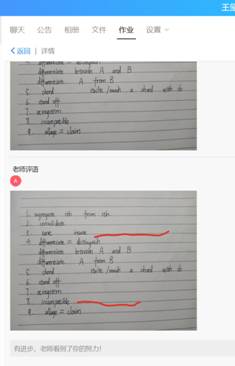 王
聊天 公告 相册 文件 作业 设置
返回 | 详情
4. differentiate = distinguish
differentiate between A and B
differentiate A from B
5. chord strike/touch a chord with sb
6. cord off
7.
8. incompatible
9. allege = claim
老师评语
A
1. segregate sth from sth
2.
3.
4. differentiate = distinguish
differentiate between A and B
differentiate A from B
5. chord strike/touch a chord with sb
6. cord off
7.
8. incompatible
9. allege = claim
有进步，老师看到了你的努力!